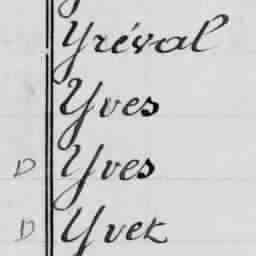 Yréval
Yves
D Yves
D Yvek